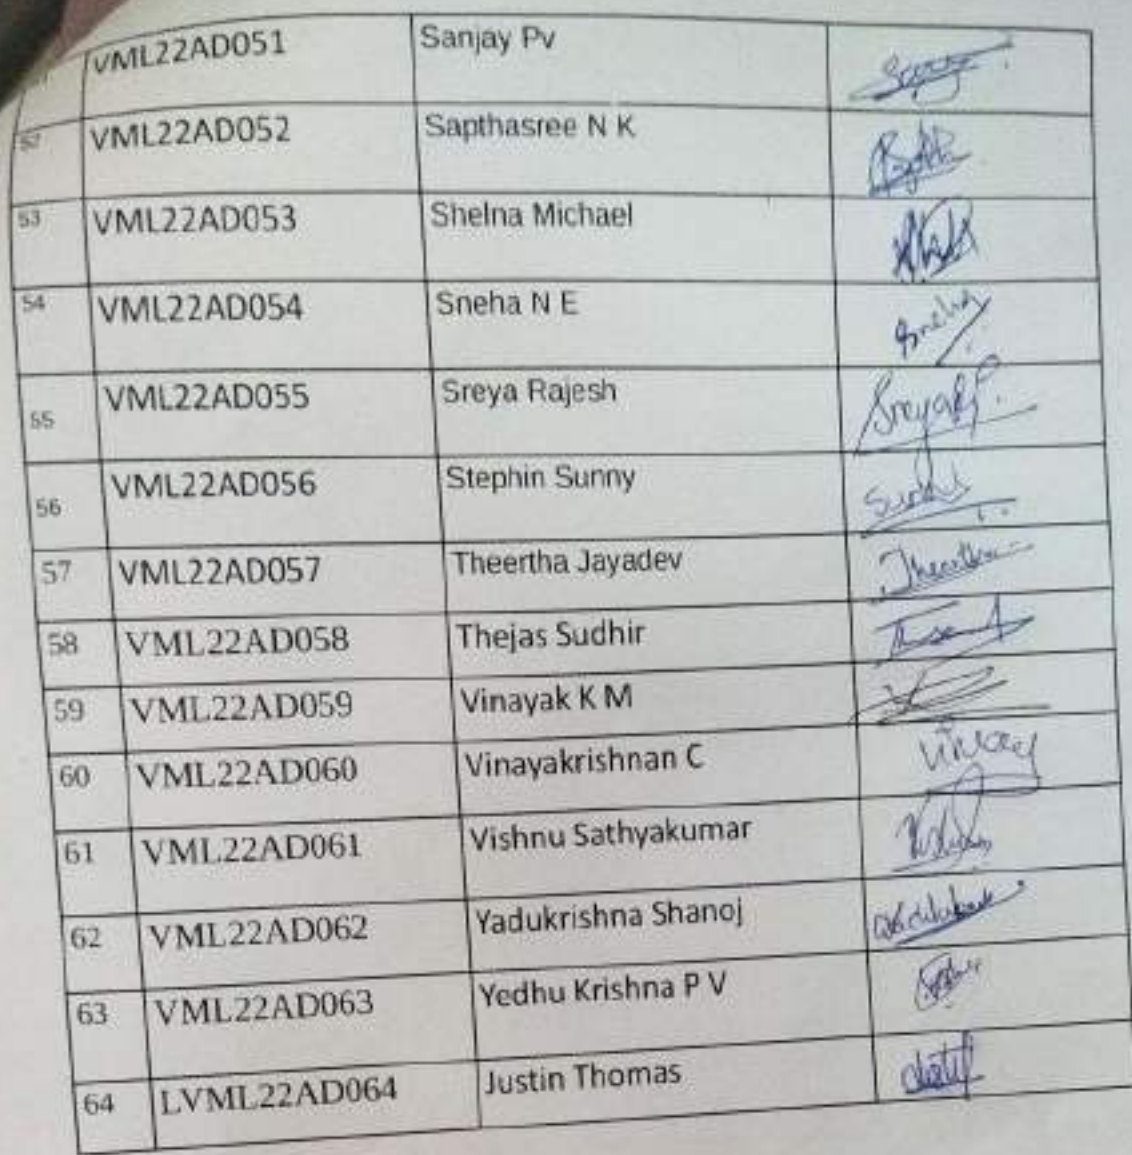 VML22AD051 Sanjay Pv
52 VML22AD052 Sapthasree N K
53 VML22AD053 Shelna Michael
54 VML22AD054 Sneha N E Sneha
55 VML22AD055 Sreya Rajesh
56 VML22AD056 Stephin Sunny
57 VML22AD057 Theertha Jayadev
58 VML22AD058 Thejas Sudhir
59 VML22AD059 Vinayak K M
60 VML22AD060 Vinayakrishnan C
61 VML22AD061 Vishnu Sathyakumar
62 VML22AD062 Yadukrishna Shanoj
63 VML22AD063 Yedhu Krishna P V
64 LVML22AD064 Justin Thomas